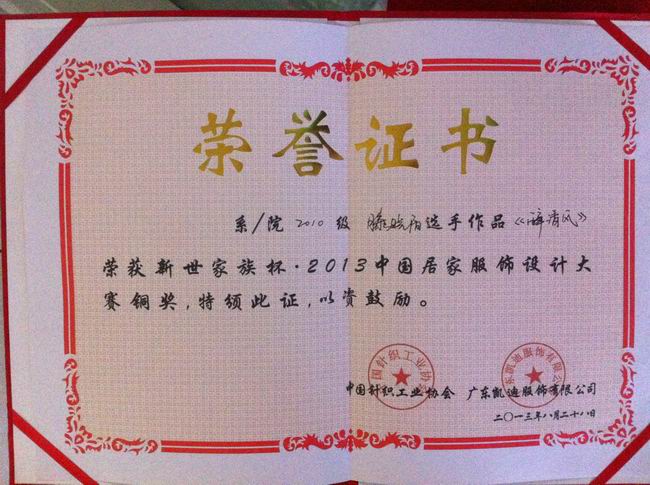 荣誉证书
系/院 2010 级 选手作品《醉清风》
荣获新世家族杯·2013中国居家服饰设计大
赛铜奖,特颁此证,以资鼓励。
中国针织工业协会 广东凯迪服饰有限公司
二〇一三年八月二十八日